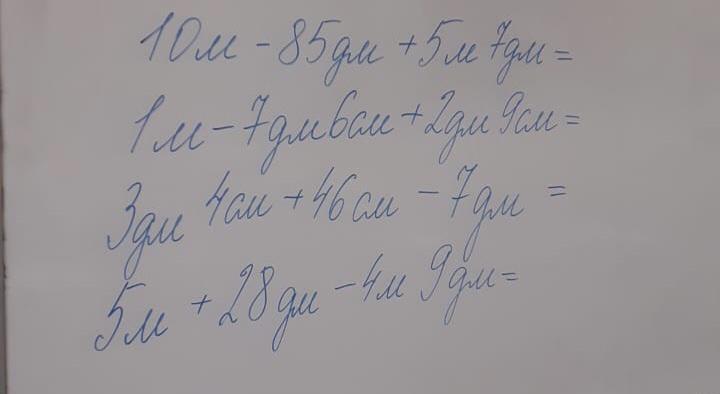 10м - 85дм + 5м 7дм =
1м - 7дм 6см + 2дм 9см =
3дм 4см + 46см - 7дм =
5м + 28дм - 4м 9дм =